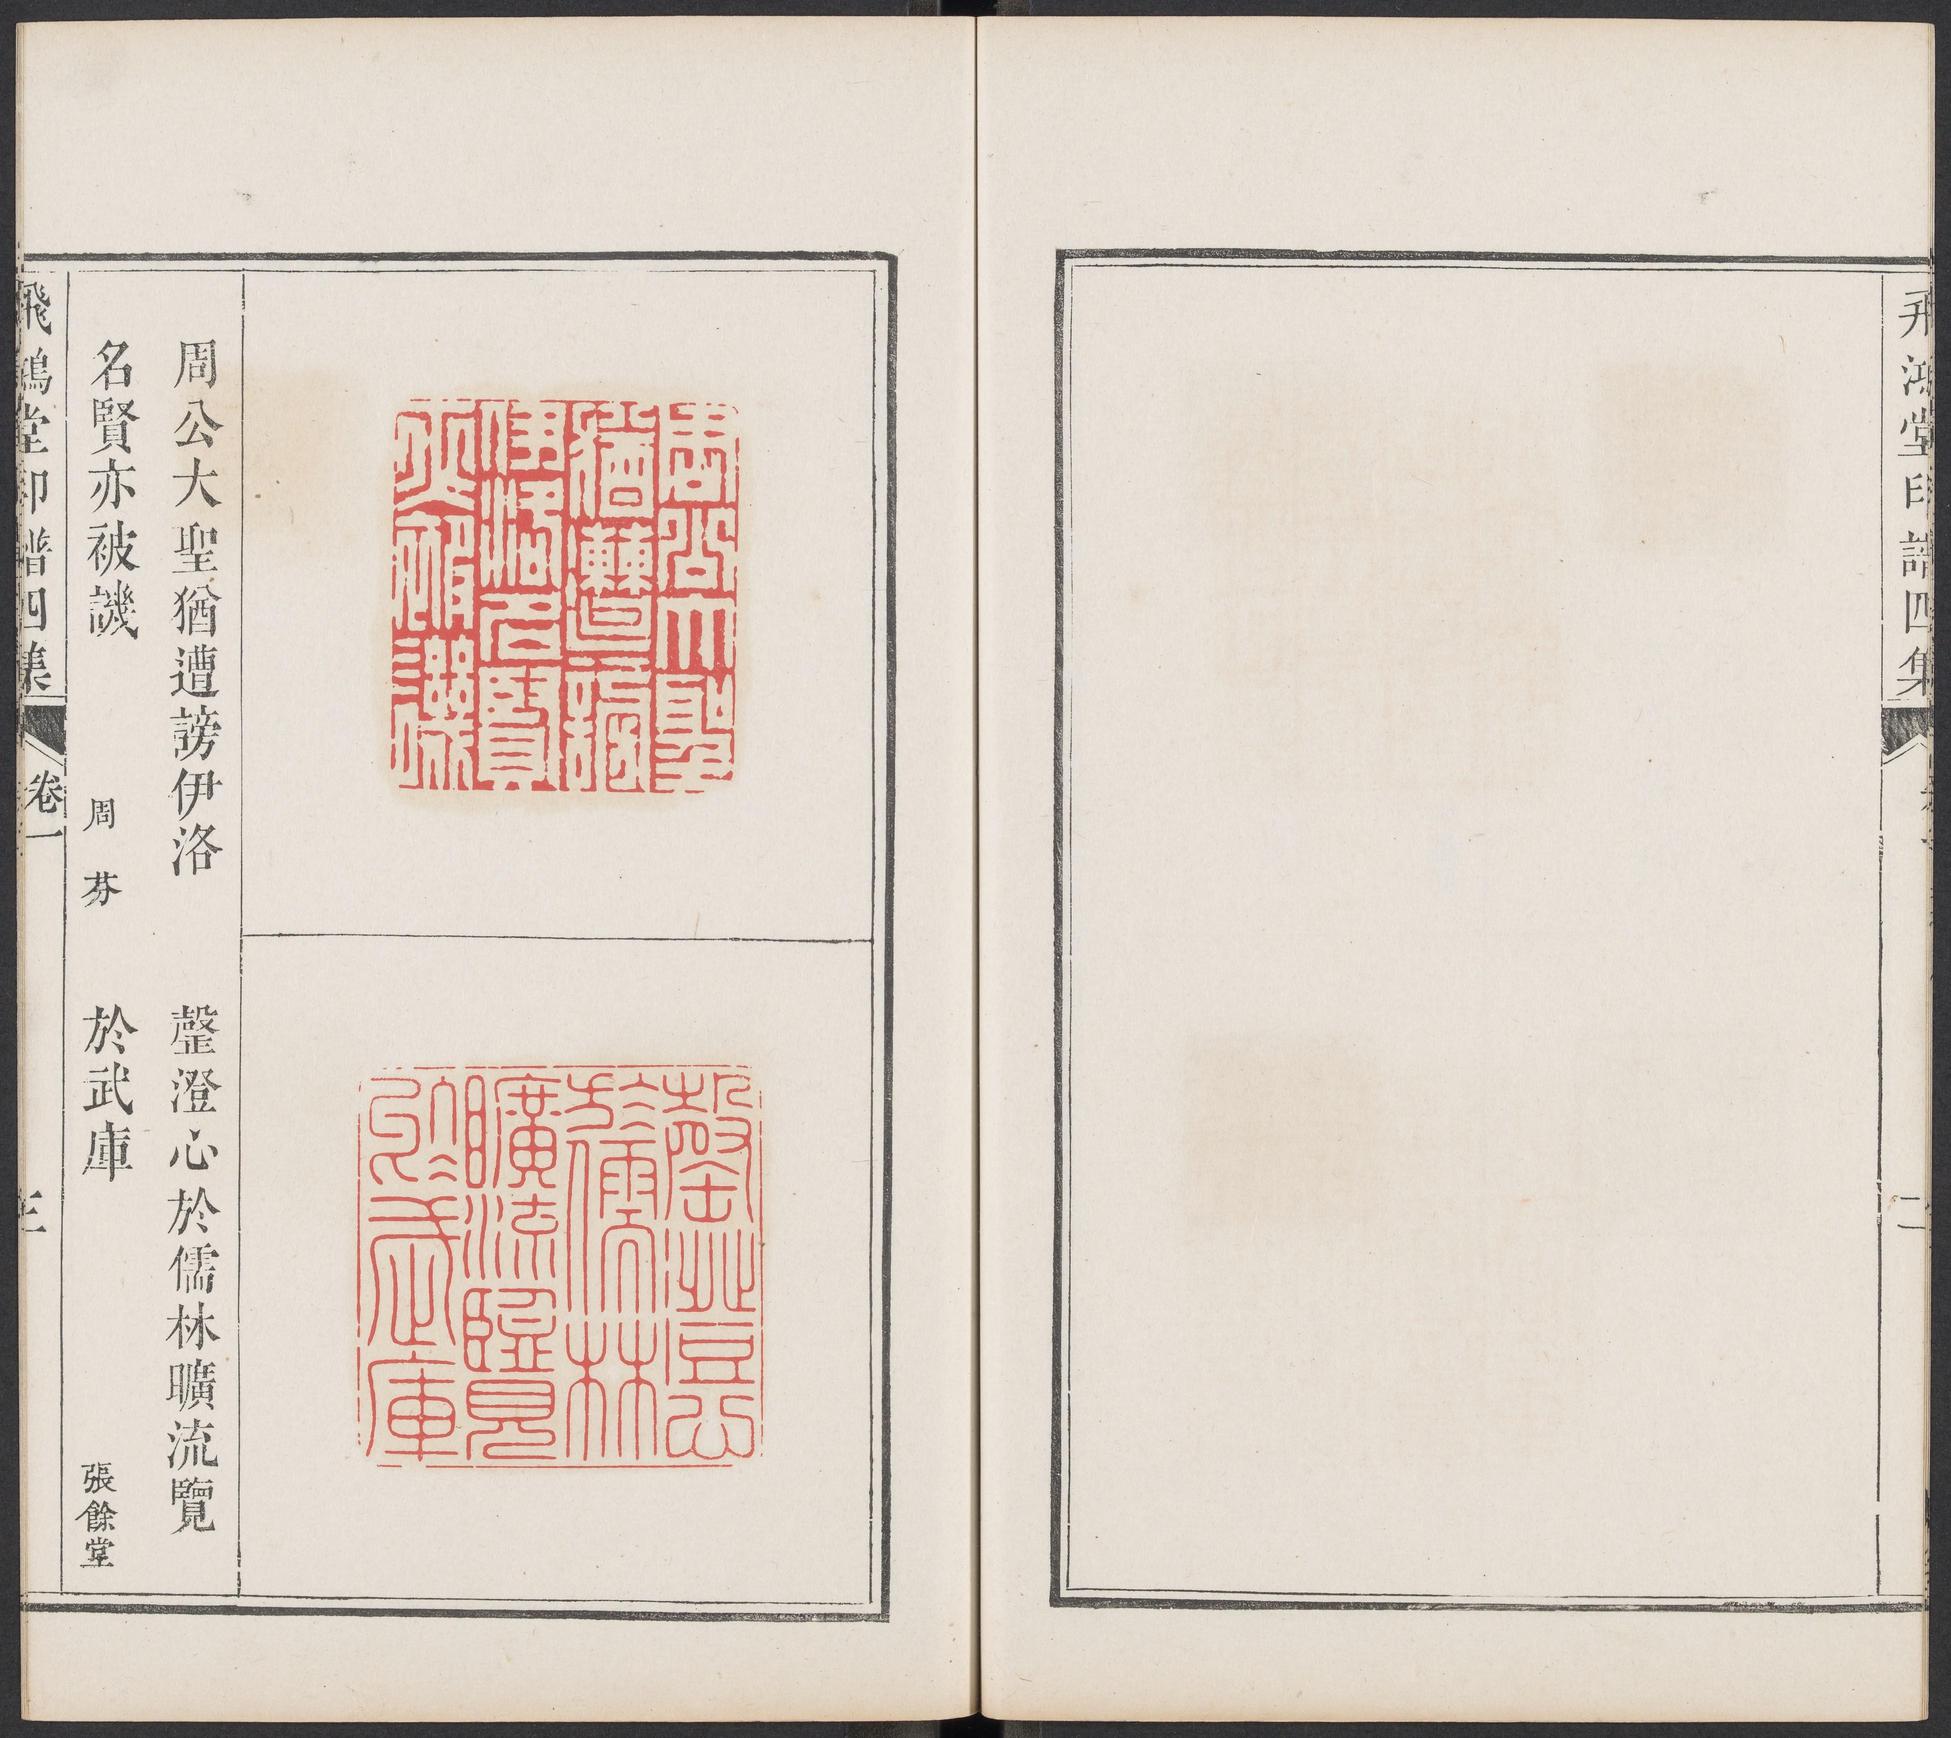 飛鴻堂印譜四集
二
周公大聖猶遭謗伊洛
名賢亦被譏
周芬
罄澄心於儒林曠流覽
於武庫
張餘堂
飛鴻堂印譜四集
卷一
三